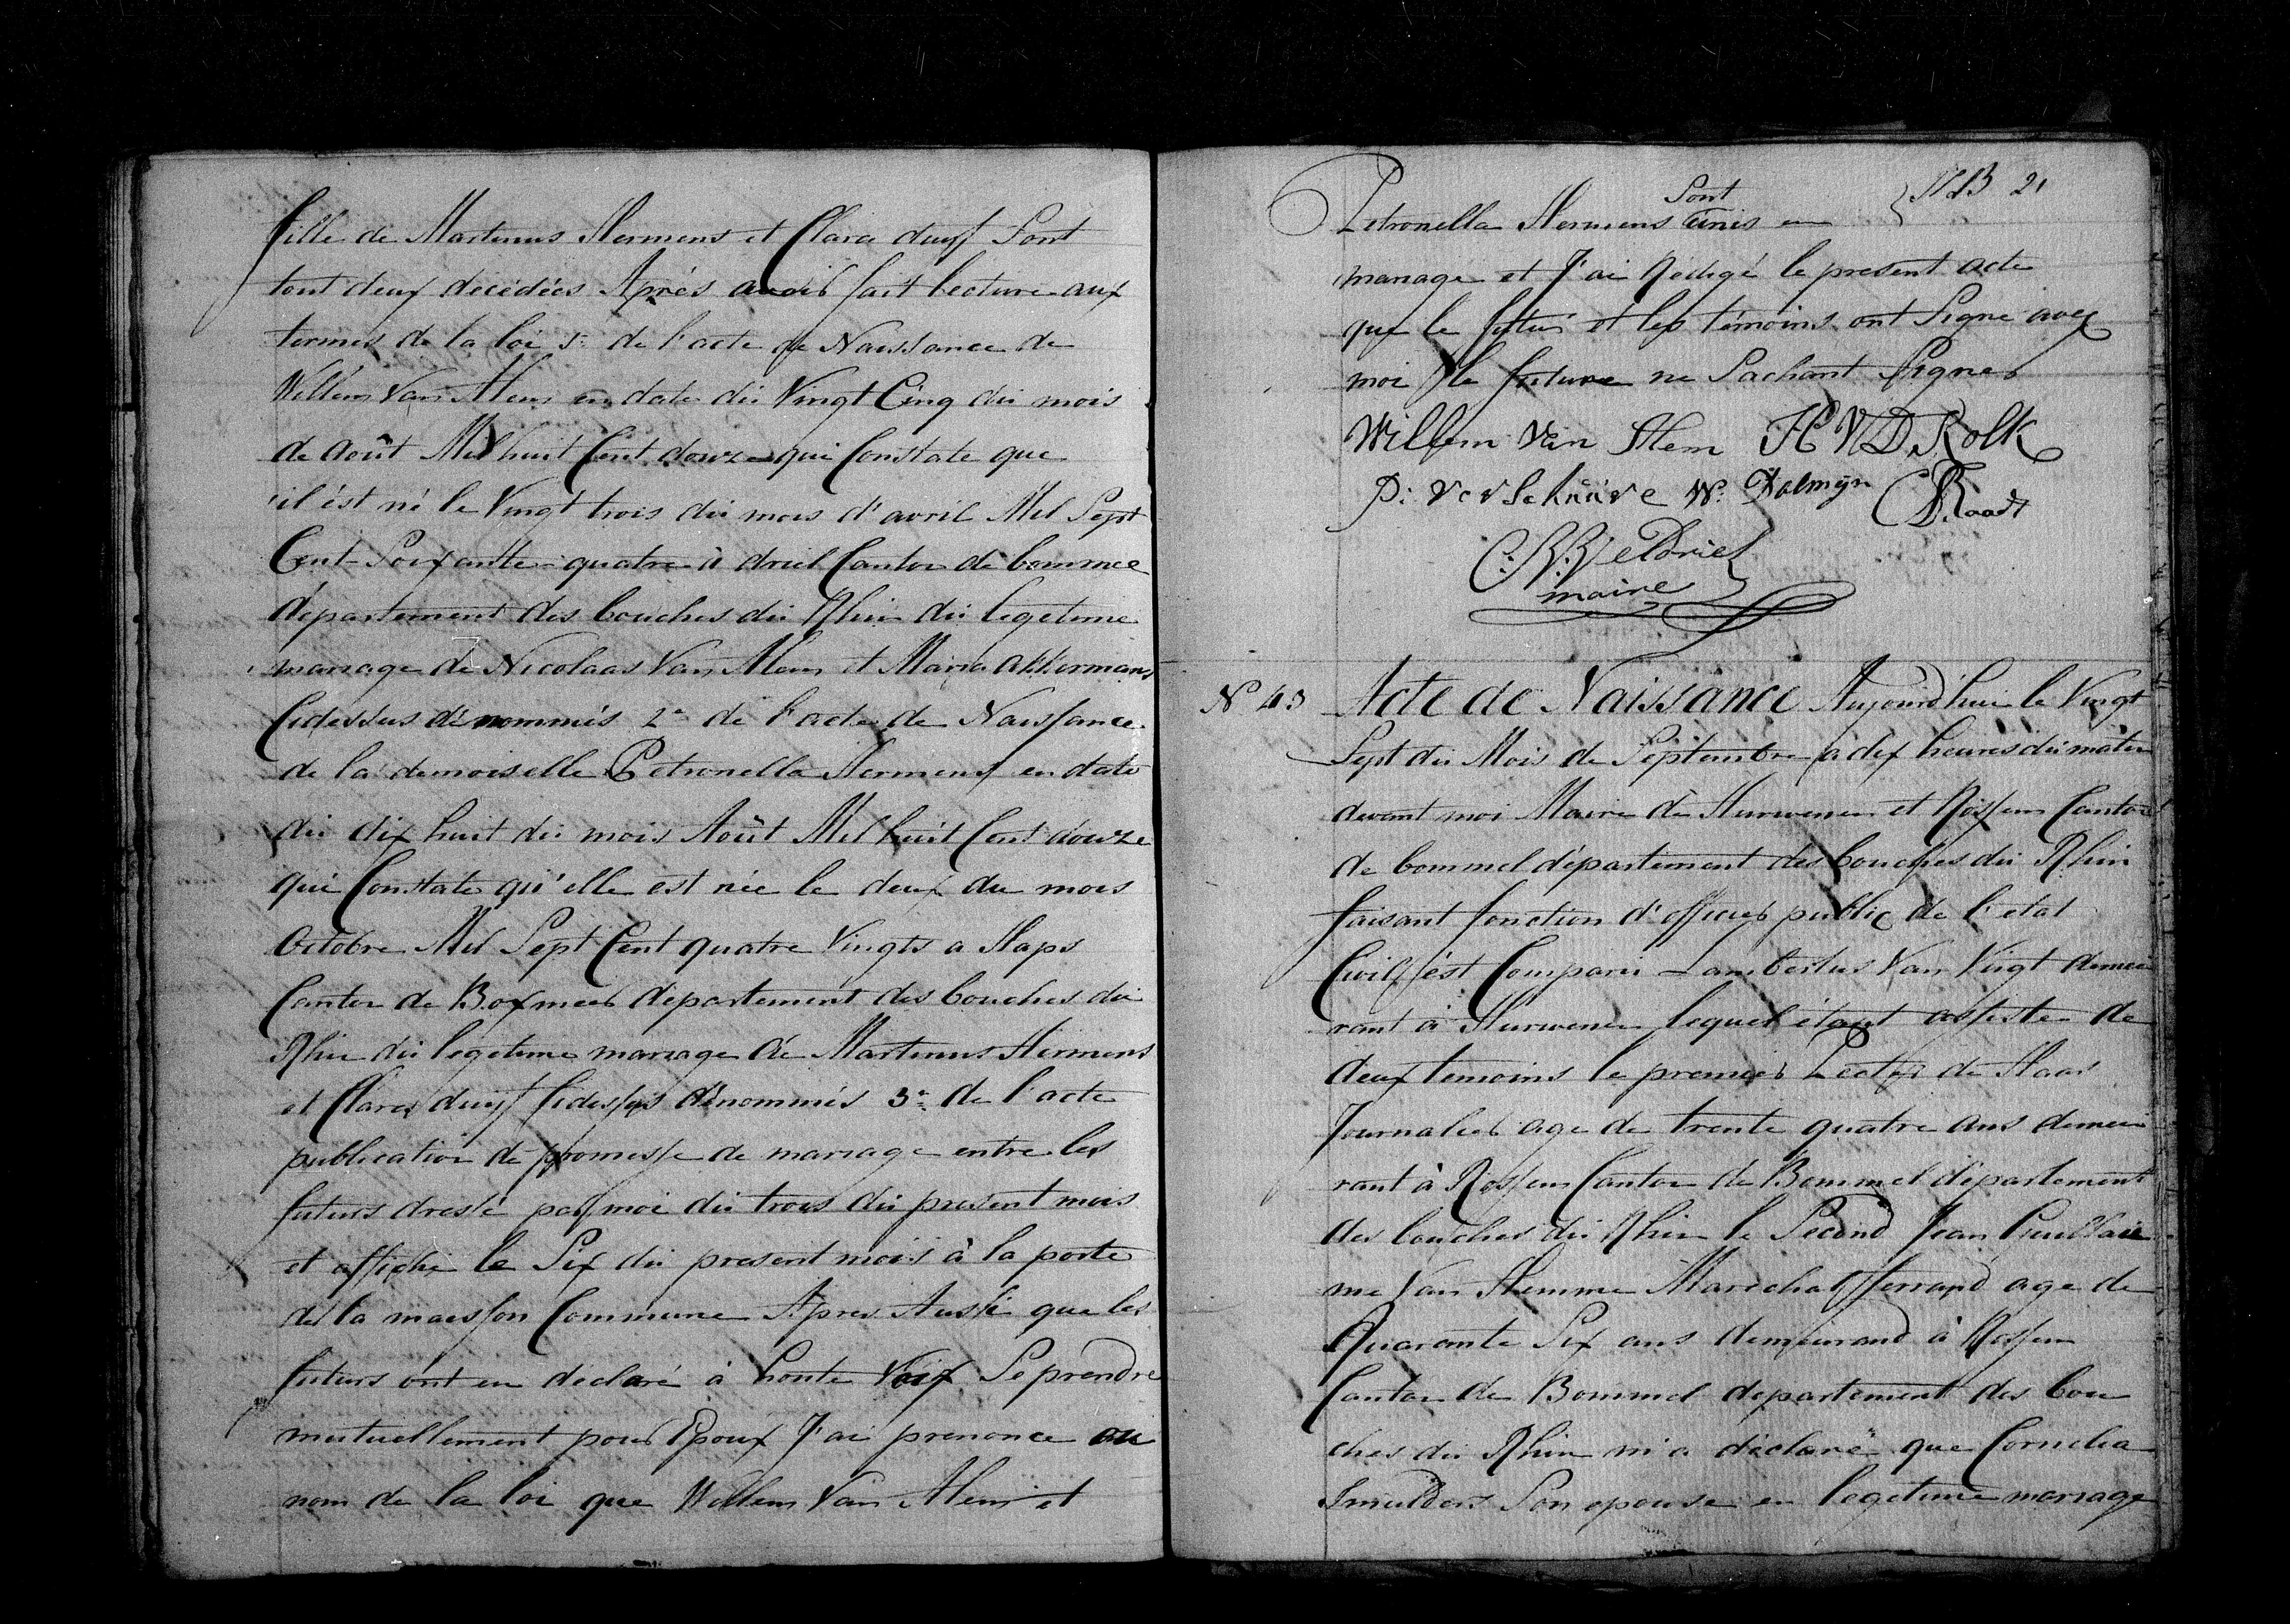 fille de Martinus Hermens et Clara duyf Sont
tout deux décédées Après avoir fait lecture aux
termes de la loi 1º de l'acte de Naissance de
Willem Van Alem en date du Vingt Cinq du mois
de Août Mil huit Cent douze qui Constate que
il ést né le Vingt trois du mois d'avril Mil Sept
Cent Soixante quatre à driel Canton de bommel
département des bouches du Rhin du legetime
mariage de Nicolaas Van Alem et Maria Akkermans
Cidessus dénommés 2º de l'acte de Naissance
de la demoiselle Petronella Hermens en date
du dix huit du mois Août Mil huit Cent douze
qui Constate qu'elle est née le deux du mois
Octobre Mil Sept Cent quatre Vingts a Haps
Canton de Boxmeer département des bouches du
Rhin du legetime mariage de Martinus Hermens
et Clara duyf Cidessus dénommés 3º de l'acte
publication de promesse de mariage entre les
futurs dressé par moi du trois du present mois
et affiche le Six du present mois à la porte
de la maisson Commune Apres Aussi que les
futurs ont en déclaré à houte Voix Se prendre
mutuellement pour Epoux J'ai prenonce au
nom de la loi que Willem Van Alem et
21
Petronella Hermens Sont unis en
mariage et J'ai Rédigé le present acte
que le futur et les témoins ont Signe avec
moi la future ne Sachant Signer
Willem Van Alem H V D Kolk
P: Verschuure W. Dalmijn CB Raadt
C: V: V: Driel
maire
Nº 43 Acte de Naissance Aujourd'hui le Vingt
Sept du Mois de Septembre a dix heures du matin
devant moi Maire de Hurwenen et Rossum Canton
de bommel département des bouches du Rhin
faisant fonction d'officier public de l'etat
Civil ést Comparu Lambertus Van Vugt demeu
rant à Hurwenen lequel étant assiste de
deux temoins le premier de Haas
Journalier age de trente quatre ans demeu
rant à Rossum Canton de Bommel département
des bouches du Rhin le Second Jean Guillau
me Van Hemme Maréchal ferrand age de
Quarante Six ans demeurand à Rossum
Canton de Bommel departement des bou
ches du Rhin m'a déclaré que Cornelia
Smulders Son epouse en legetime mariage